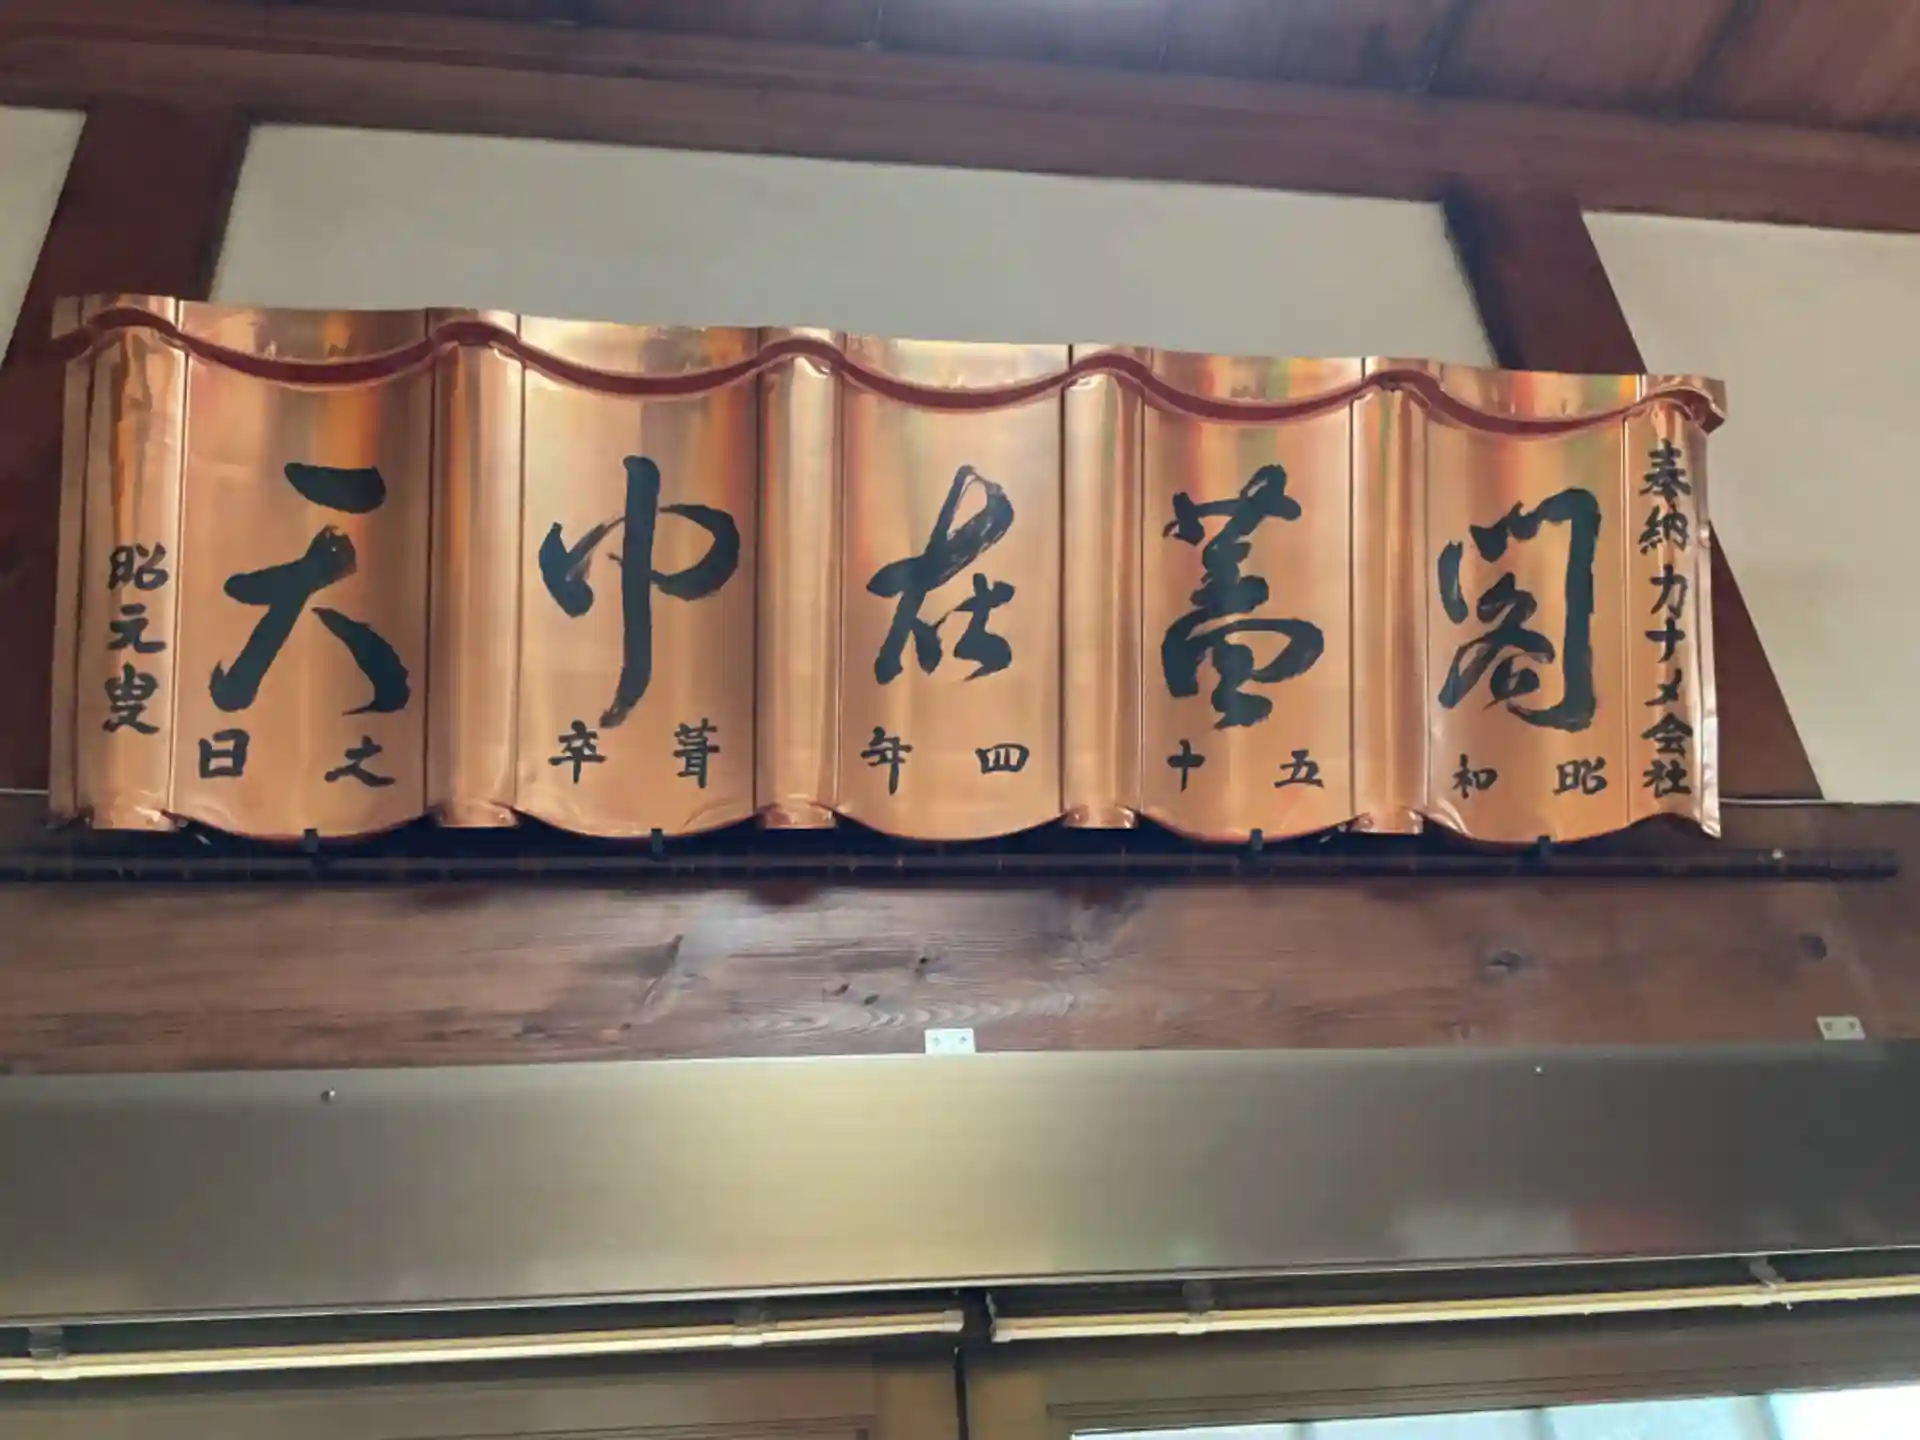 奉納カナメ会社
閣蓋在巾天
昭和五十四年葺卒之日
昭元叟